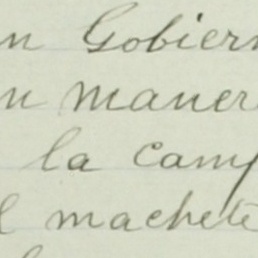 n Gobiern
su maner
la camp
l machete